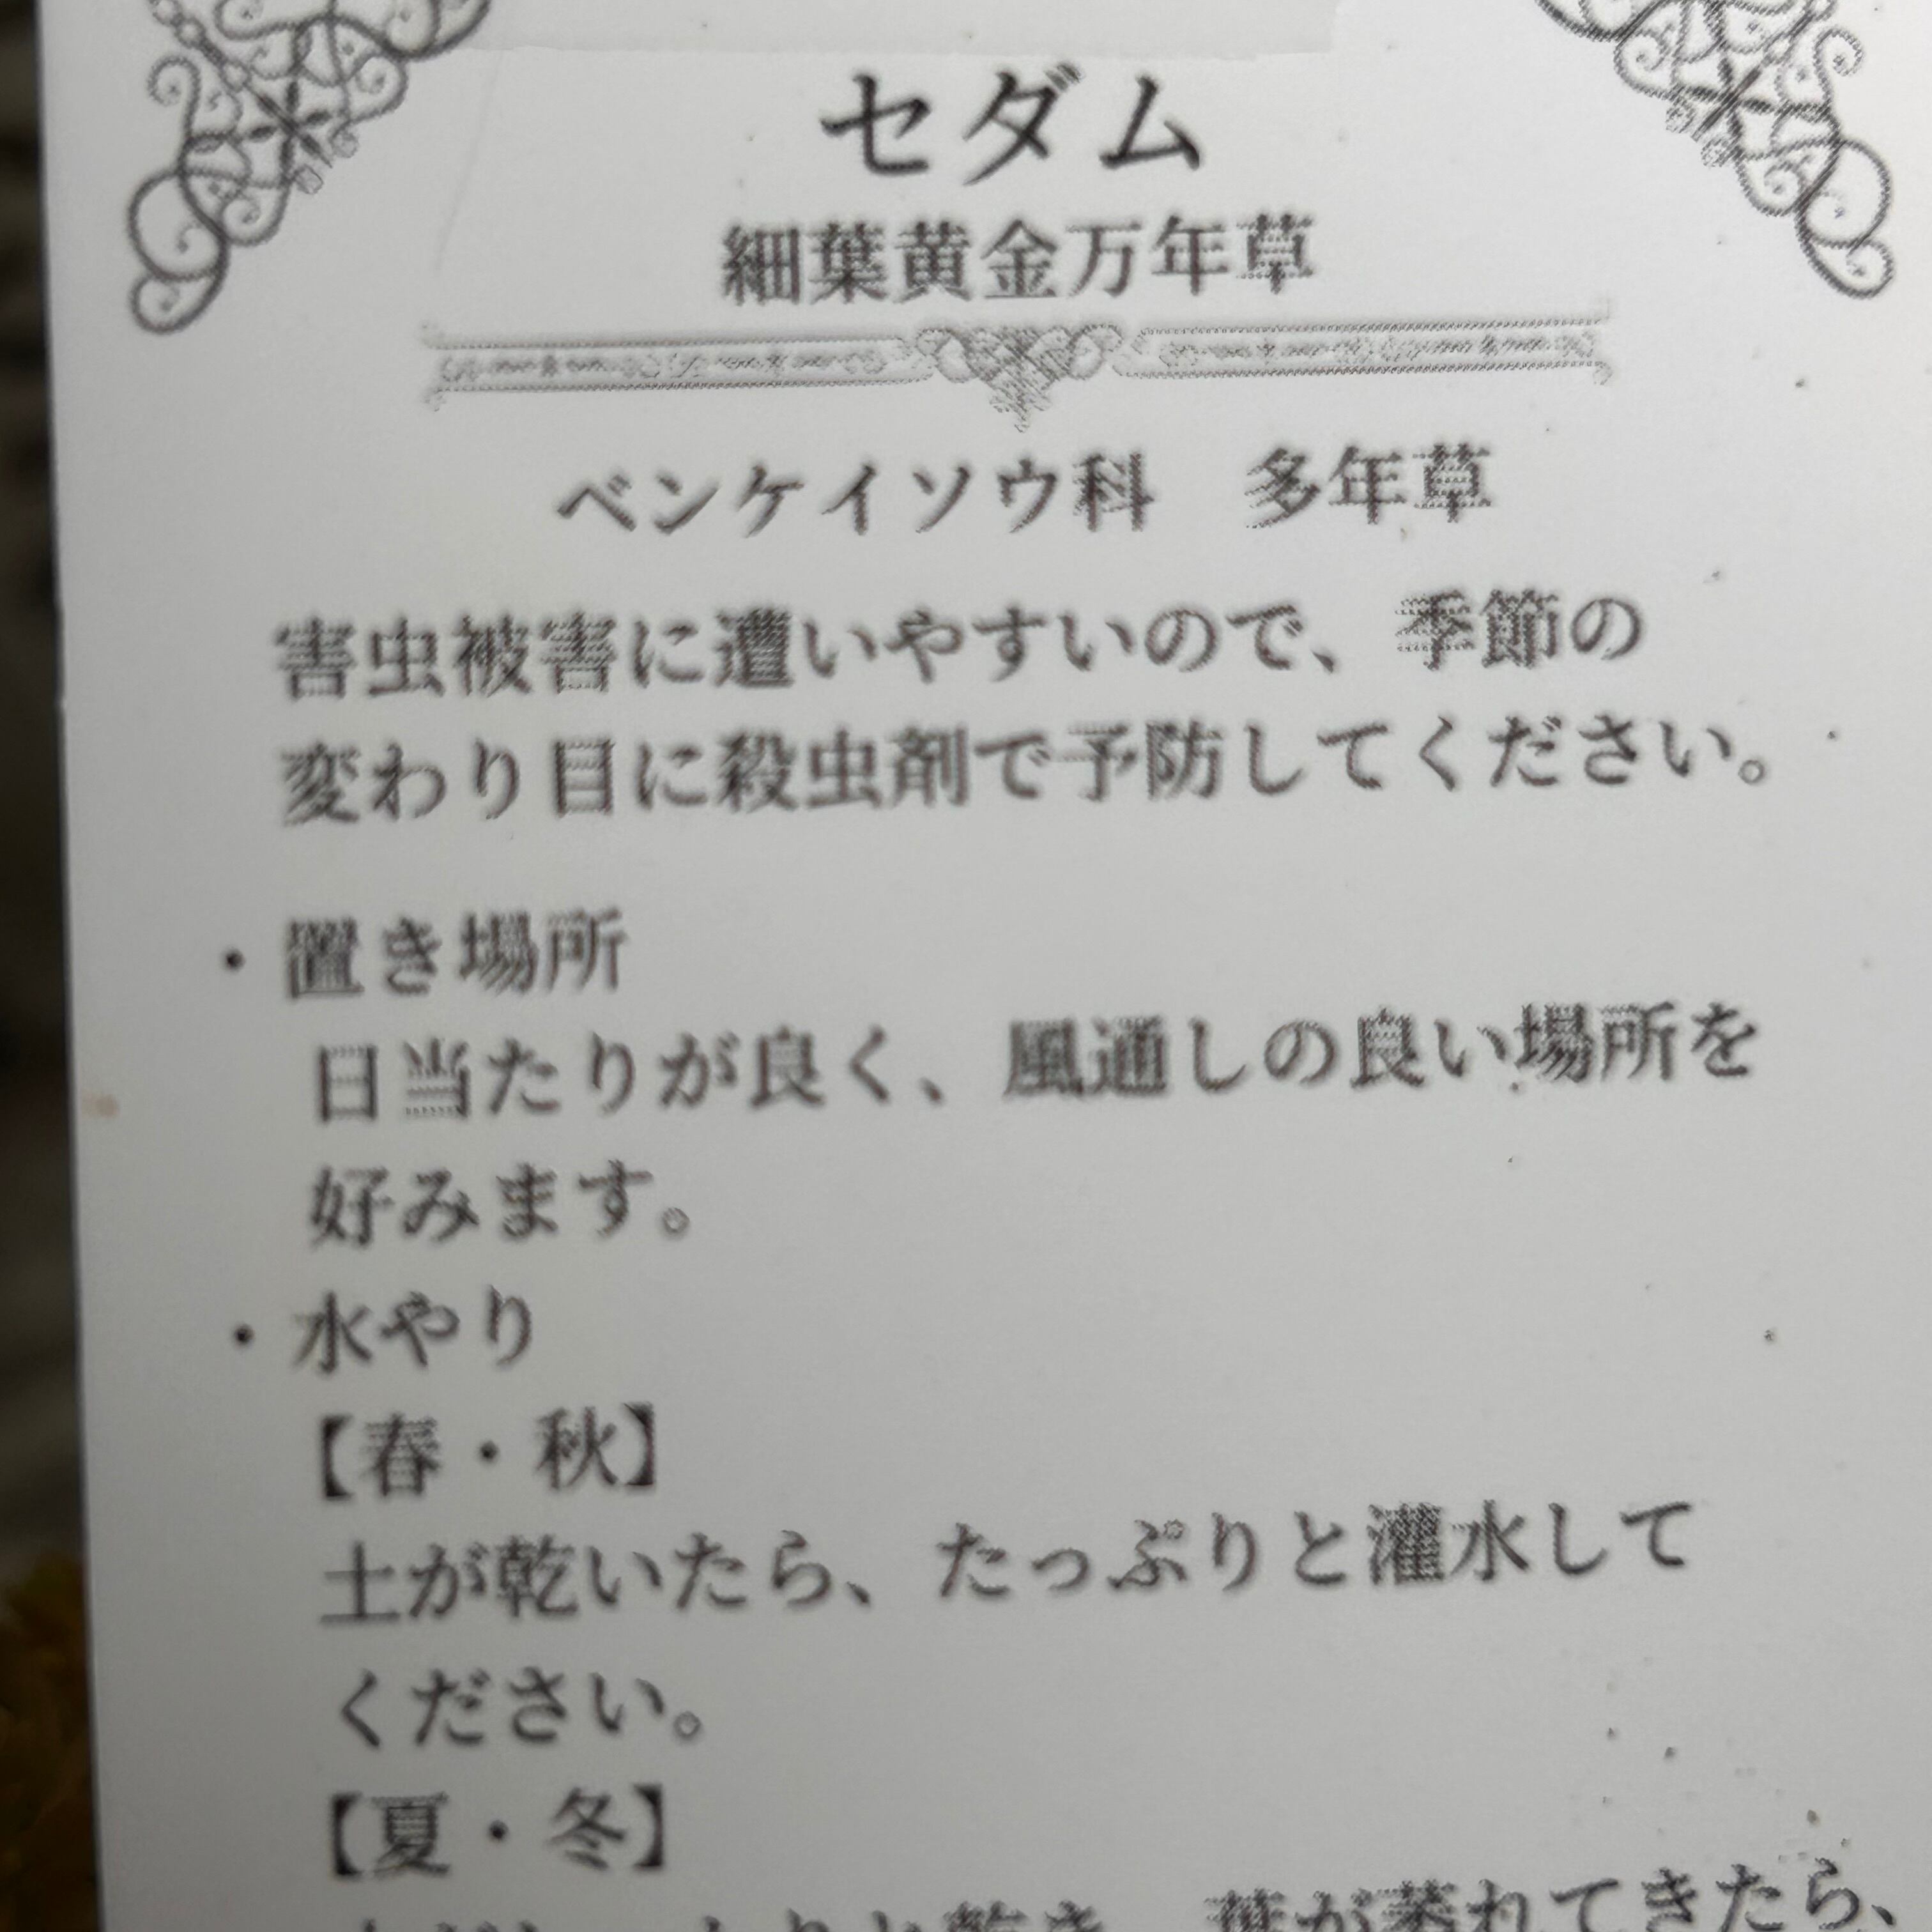 セダム
細葉黄金万年草
ベンケイソウ科　多年草
害虫被害に遭いやすいので、季節の
変わり目に殺虫剤で予防してください。
・置き場所
日当たりが良く、風通しの良い場所を
好みます。
・水やり
【春・秋】
土が乾いたら、たっぷりと灌水して
ください。
【夏・冬】
乾き、葉が萎れてきたら、